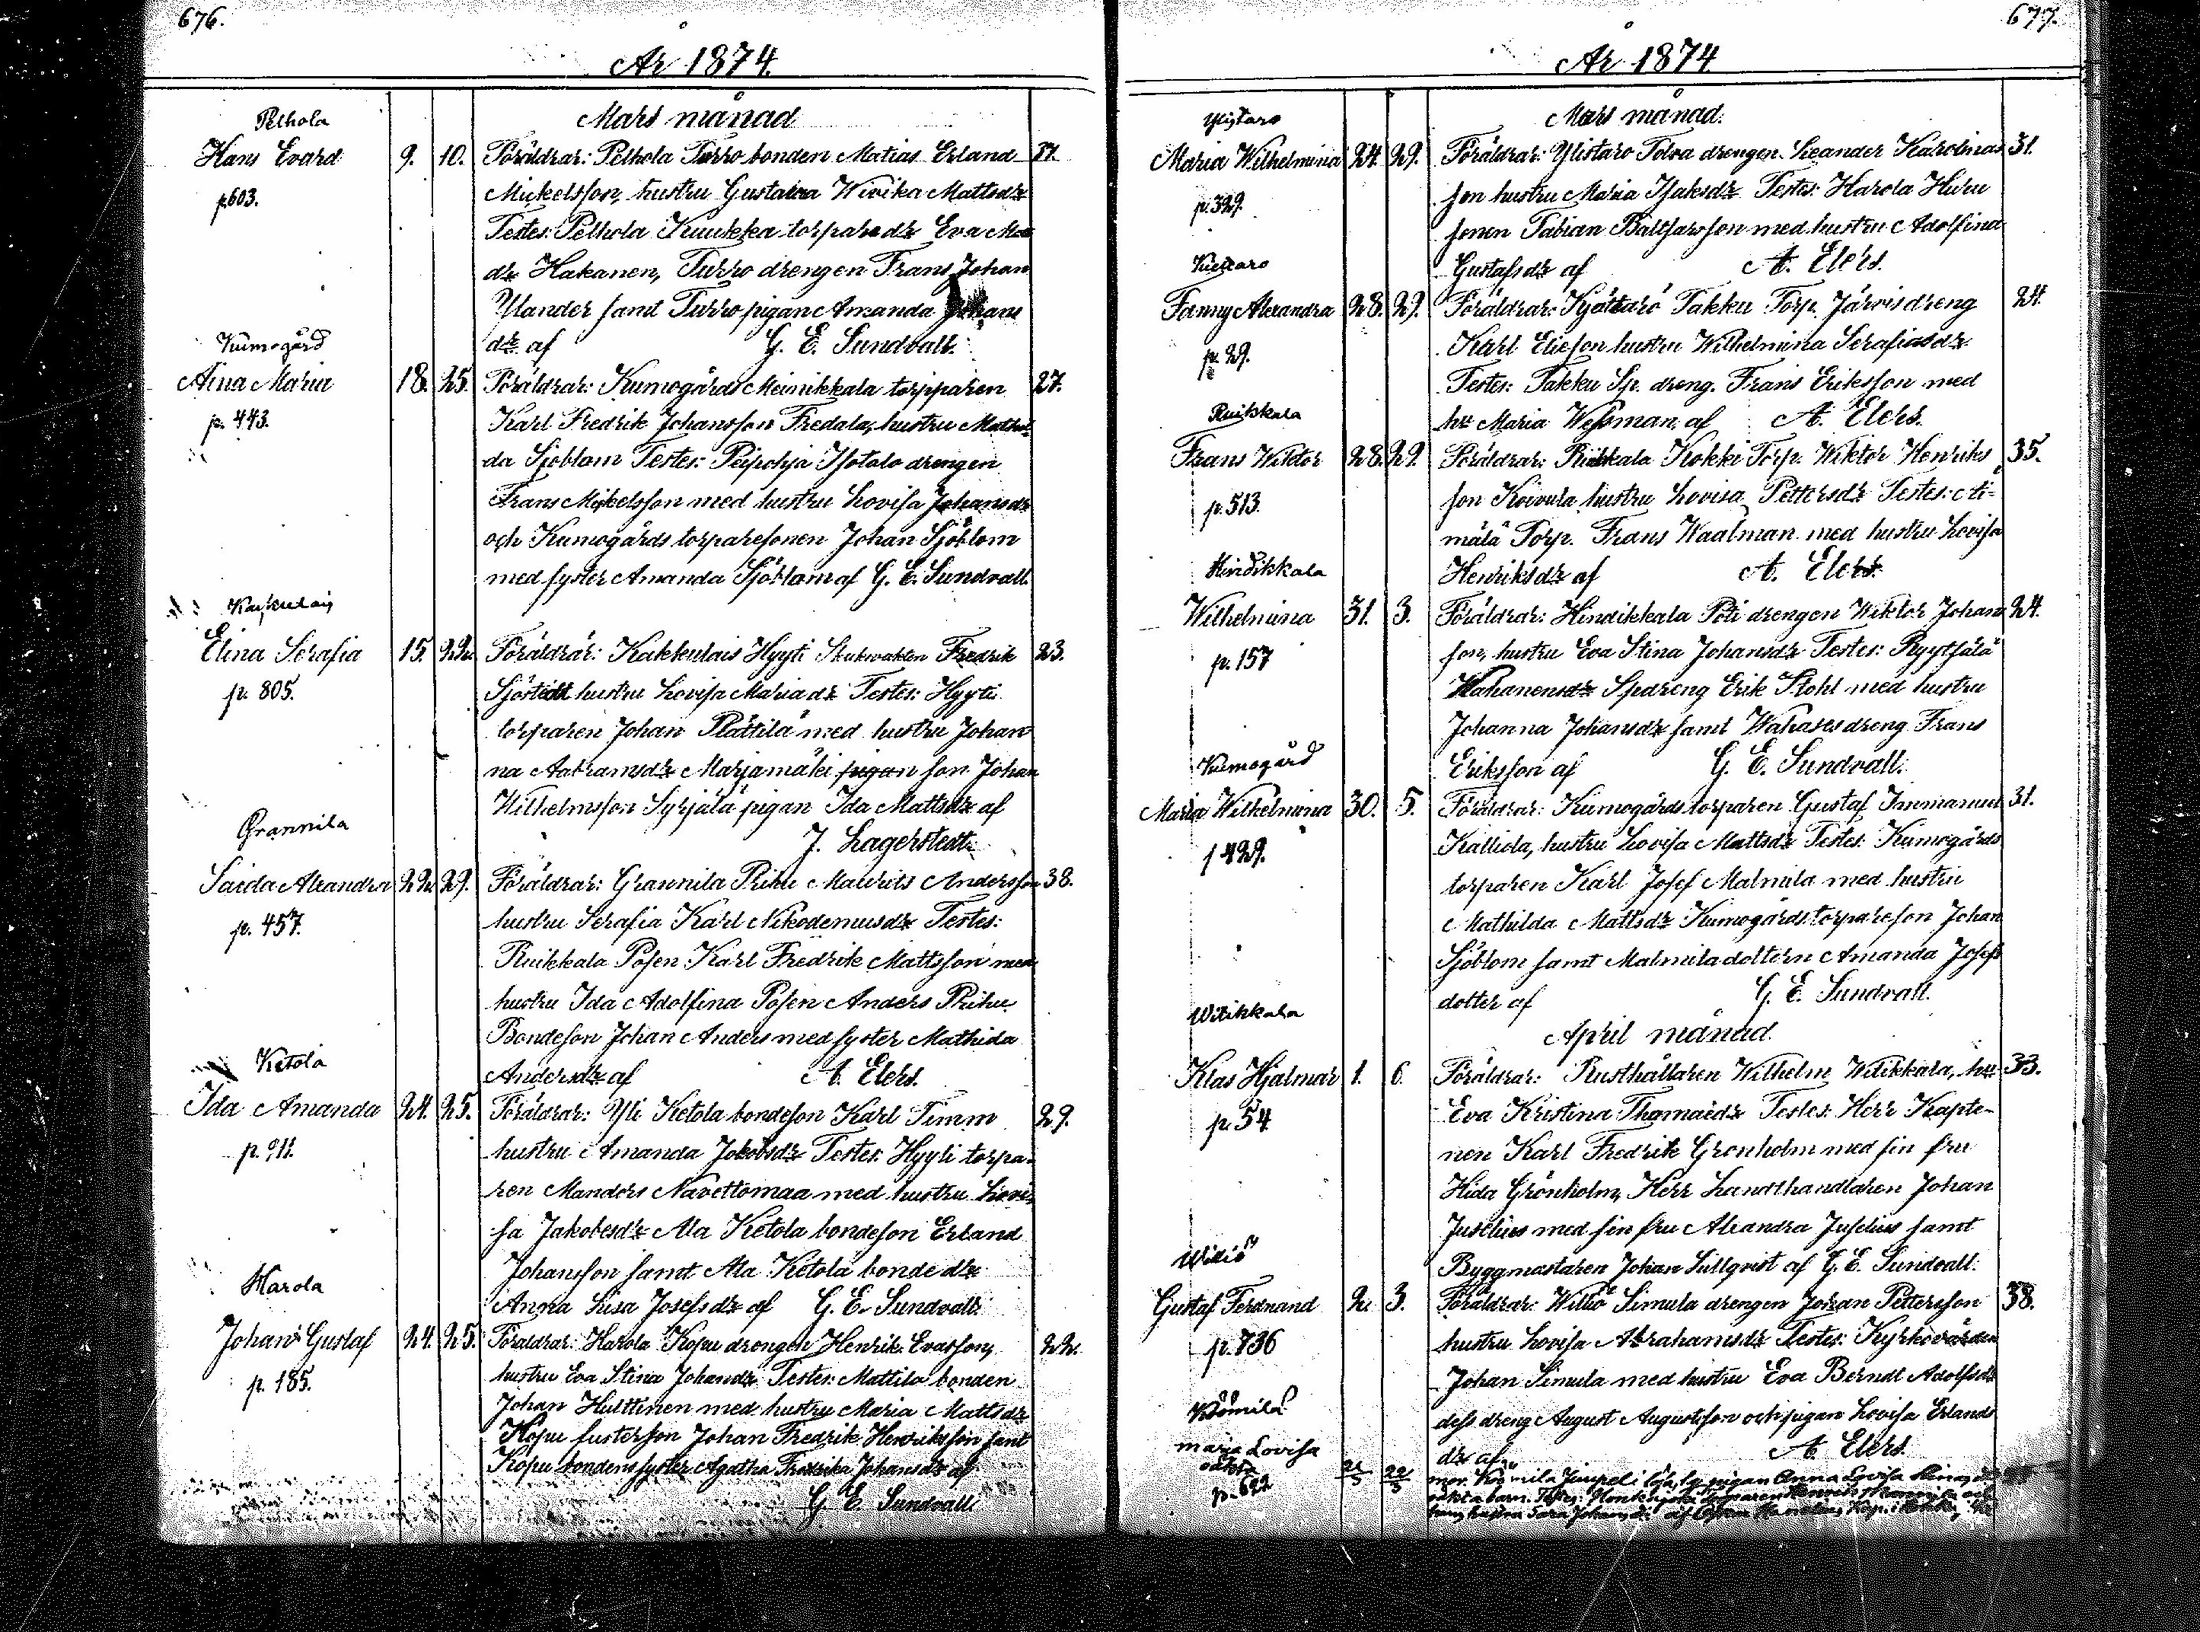 676.
År 1874.
Mars månad
Pelhola
Hans Evard 9. 10. Föräldrar: Pelhola Turro bonden Matias Erland
p.603.
Mickelsson, hustru Gustava Wivika Mattsdr
Testes: Pelhola Kuukka torparedr Eva
dr Hakanen, Turro drengen Frans Johan
Ylander samt Turro pigan Amanda Johans
dr af G. E. Sundvall.
Kumogård
Aina Maria 18. 25. Föräldrar: Kumogårds Meinikkala torpparen 27.
p. 443.
Karl Fredrik Johansson Fredala, hustru Mathil-
da Sjöblom Testes: Peipohja Isotalo drengen
Frans Mickelsson med hustru Lovisa Johansdr
och Kumogårds torparesonen Johan Sjöblom
med syster Amanda Sjöblom af G. E. Sundvall.
Kakkulais
Elina Serafia 15. 22. Föräldrar: Kakkulais Hyyti Fredrik 23.
p. 805.
Sjöstedt hustru Lovisa Mariadr Testes: Hyyti
torparen Johan Plättilä med hustru Johan
na Aabramsdr Marjamäki pigan son Johan
Wilhelmsson Syrjälä pigan Ida Mattsdr af
J. Lagerstedt.
Grannila
Saida Alexandra 22. 29. Föräldrar: Grannila Prihu Maurits Andersson 38.
p. 457.
hustru Serafia Karl Nikodemusdr Testes:
Ruikkala Posen Karl Fredrik Mattsson med
hustru Ida Adolfina Posen Anders Prihu
Bondeson Johan Anders med syster Mathida
Andersdr af A. Elers.
Ketola
Ida Amanda 24. 25. Föräldrar: Yli Ketola bondeson Karl Timm 29.
p. 911.
hustru Amanda Jakobsdr Testes: Hyyti torpa-
ren Manders Navettomaa med hustru Lovi-
sa Jakobesdr Ala Ketola bondeson Erland
Johansson samt Ala Ketola bonde dr
Anna Lisa Josefsdr af G. E. Sundvall.
Harola
Johan Gustaf 24. 25. Föräldrar: Harola Kopu drengen Henrik Evasson, 22.
p. 185.
hustru Eva Stina Johansdr Testes: Mattila bonden
Johan Hulttinen med hustru Maria Mattsdr
Kopu systerson Johan Fredrik Henriksson samt
Kopu bondens syster Agatha Fredrika Johansdr af
G. E. Sundvall.
677.
År 1874
Mars månad.
Ylistaro
Maria Wilhelmina 24. 29. Föräldrar: Ylistaro Tolva drengen Leander Karolinas 31.
p. 329.
son hustru Maria Isaksdr Testes: Harola Huru
sonen Fabian Baltsarsson med hustru Adolfina
Gustafsdr af A. Elers.
Fanny Alexandra 28. 29. Föräldrar: Kjättarö Takku Torp. Järvis dreng 24.
p. 29.
Karl Elieson hustru Wilhelmina Serafiasdr
Testes: Takku Sp. dreng. Frans Eriksson med
hr Maria Wessman, af A. Elers.
Ruikkala
Frans Wiktor 28. 29. Föräldrar: Ruikkala Kokki Torp. Wiktor Henriks 35.
p. 513.
son Koivula hustru Lovisa Pettersdr Testes: Ni-
mälä Torp. Frans Waalman med hustru Lovisa
Henriksdr af A. Elers.
Hindikkala
Wilhelmina 31. 3. Föräldrar: Hindikkala Poti drengen Wiktor Johan 24.
p. 157
son, hustru Eva Stina Johansdr Testes:
Spdreng Erik Stohl med hustru
Johanna Johansdr samt Wahases dreng Frans
Eriksson af G. E. Sundvall.
Kumogård
Maria Wilhelmina 30. 5. Föräldrar: Kumogårds torparen Gustaf Immanuel 31.
p 429.
Kalliola, hustru Lovisa Mattsdr Testes: Kumogårds
torparen Karl Josef Malmila med hustru
Mathilda Mattsdr Kumogårds torpareson Johan
Sjöblom samt Malmila doltern Amanda Josefs
dotter af G. E. Sundvall.
April månad.
Witikkala
Klas Hjalmar 1. 6. Föräldrar: Rusthållaren Wilhelm Witikkala, hu 33.
p. 54
Eva Kristina Thomaedr Testes: Herr Kapte-
nen Karl Fredrik Grönholm med sin fru
Hida Grönholm, Herr Landthandlaren Johan
Juselius med sin fru Alexandra Juselius samt
Byggmastaren Johan Sullqvist af G. E. Sundvall.
Williö
Gustaf Ferdnand 2. 3. Föräldrar: Williö Simula drengen Johan Pettersson 38.
p. 736
hustru Lovisa Abrahamsdr Testes: Kyrkovärden
Johan Simula med hustru Eva Berndt Adolfsdr
dess dreng August Augustsson och pigan Lovisa Erlands
dr af A. Elers.
Kömilä
Maria Lovisa
oäkta
p. 622
mor. Kömilä pigan Anna Lovisa
oäkta barn. Testes: torparen
hustru Sara Johansdr af